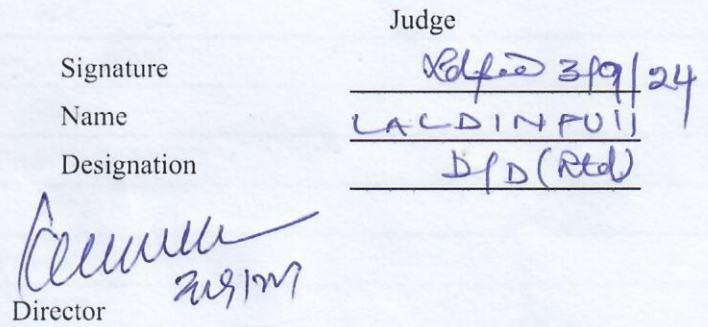 Judge
Signature 3/9/24
Name LALDINPUII
Designation D/D (Rtd)
Director